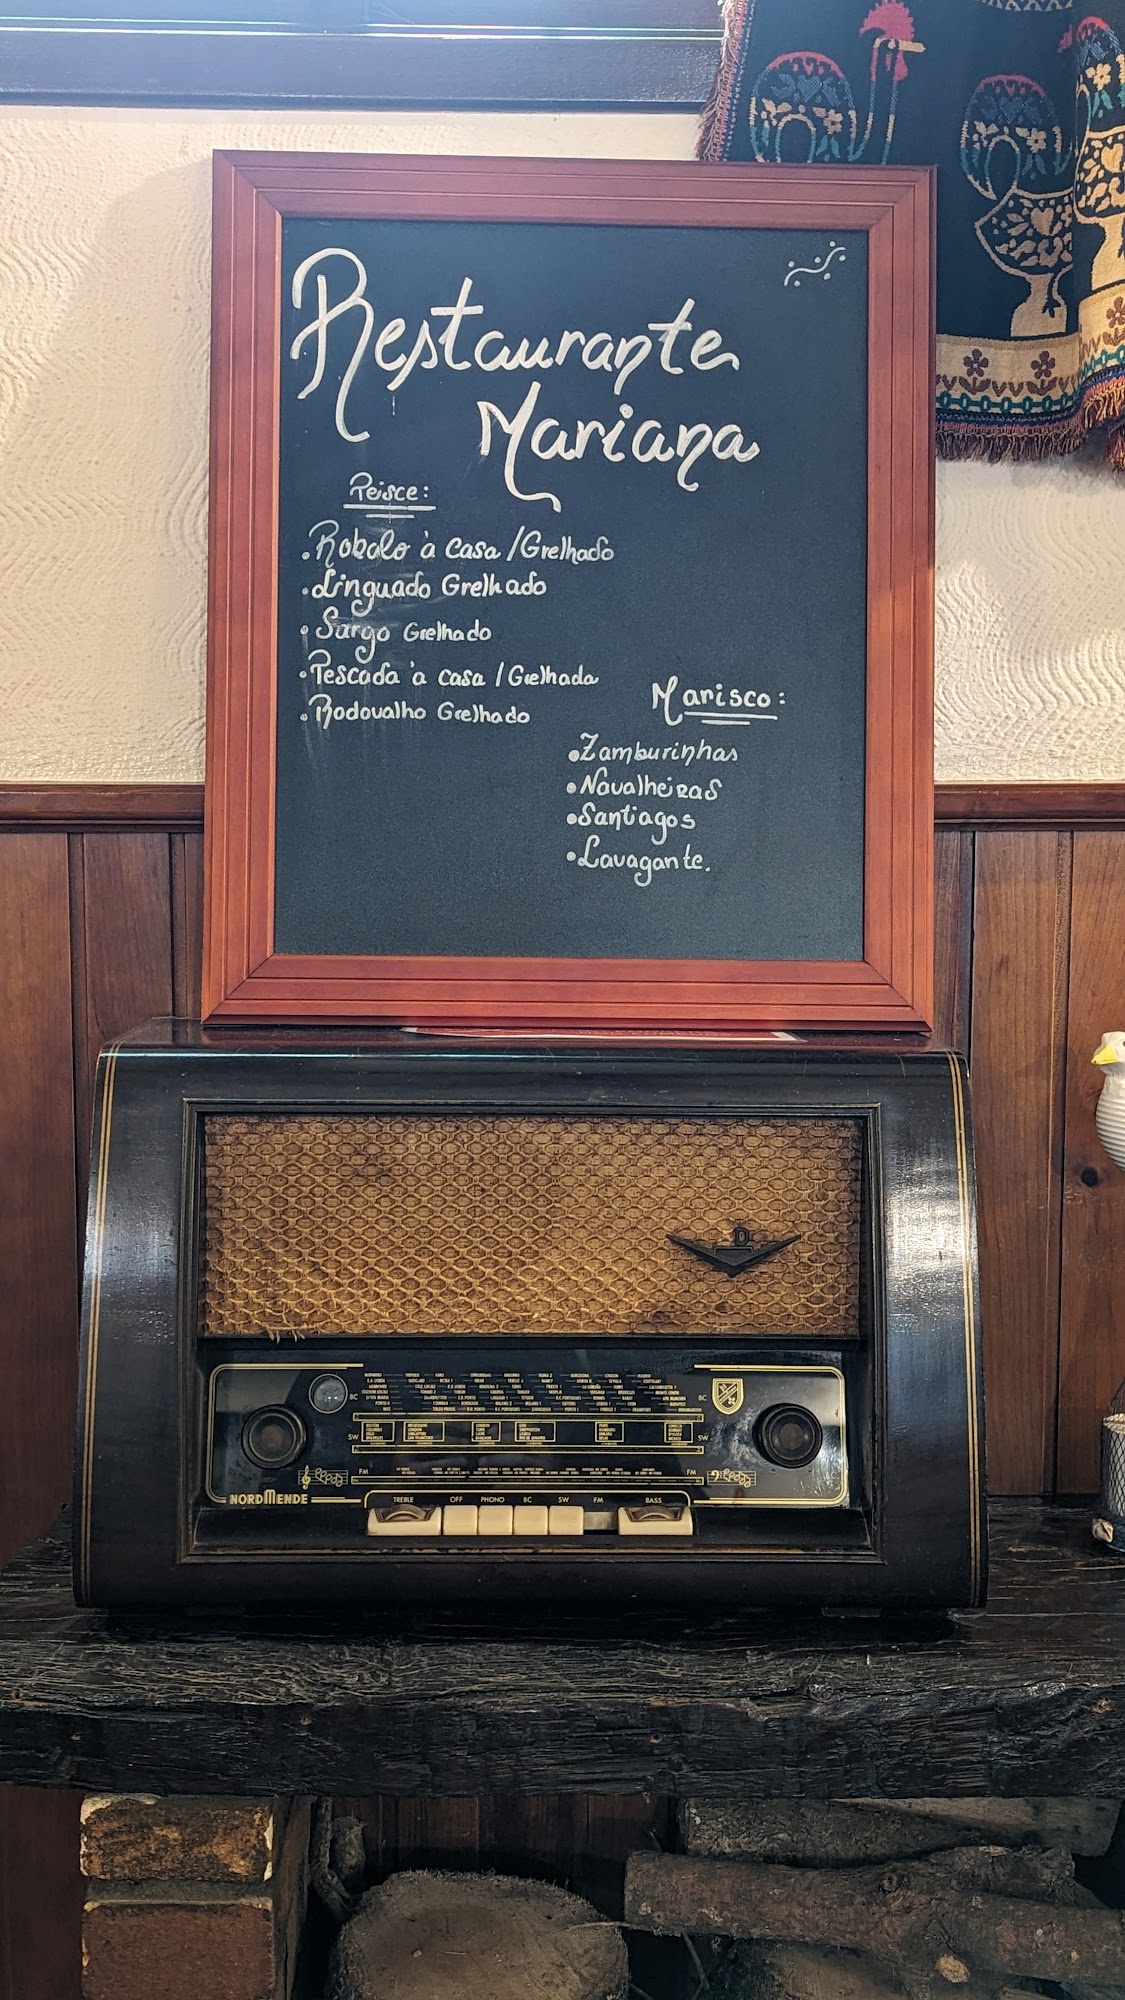 Restaurante
Mariana
Peisce:
• Robalo à casa / Grelhado
• Linguado Grelhado
• Sargo Grelhado
• Pescada à casa / Grelhada
• Rodovalho Grelhado
Marisco:
• Zamburinhas
• Navalheiras
• Santiagos
• Lavagante.
D
BC
BC
SW
SW
FM
FM
NORDMENDE
TREBLE
OFF
PHONO
BC
SW
FM
BASS